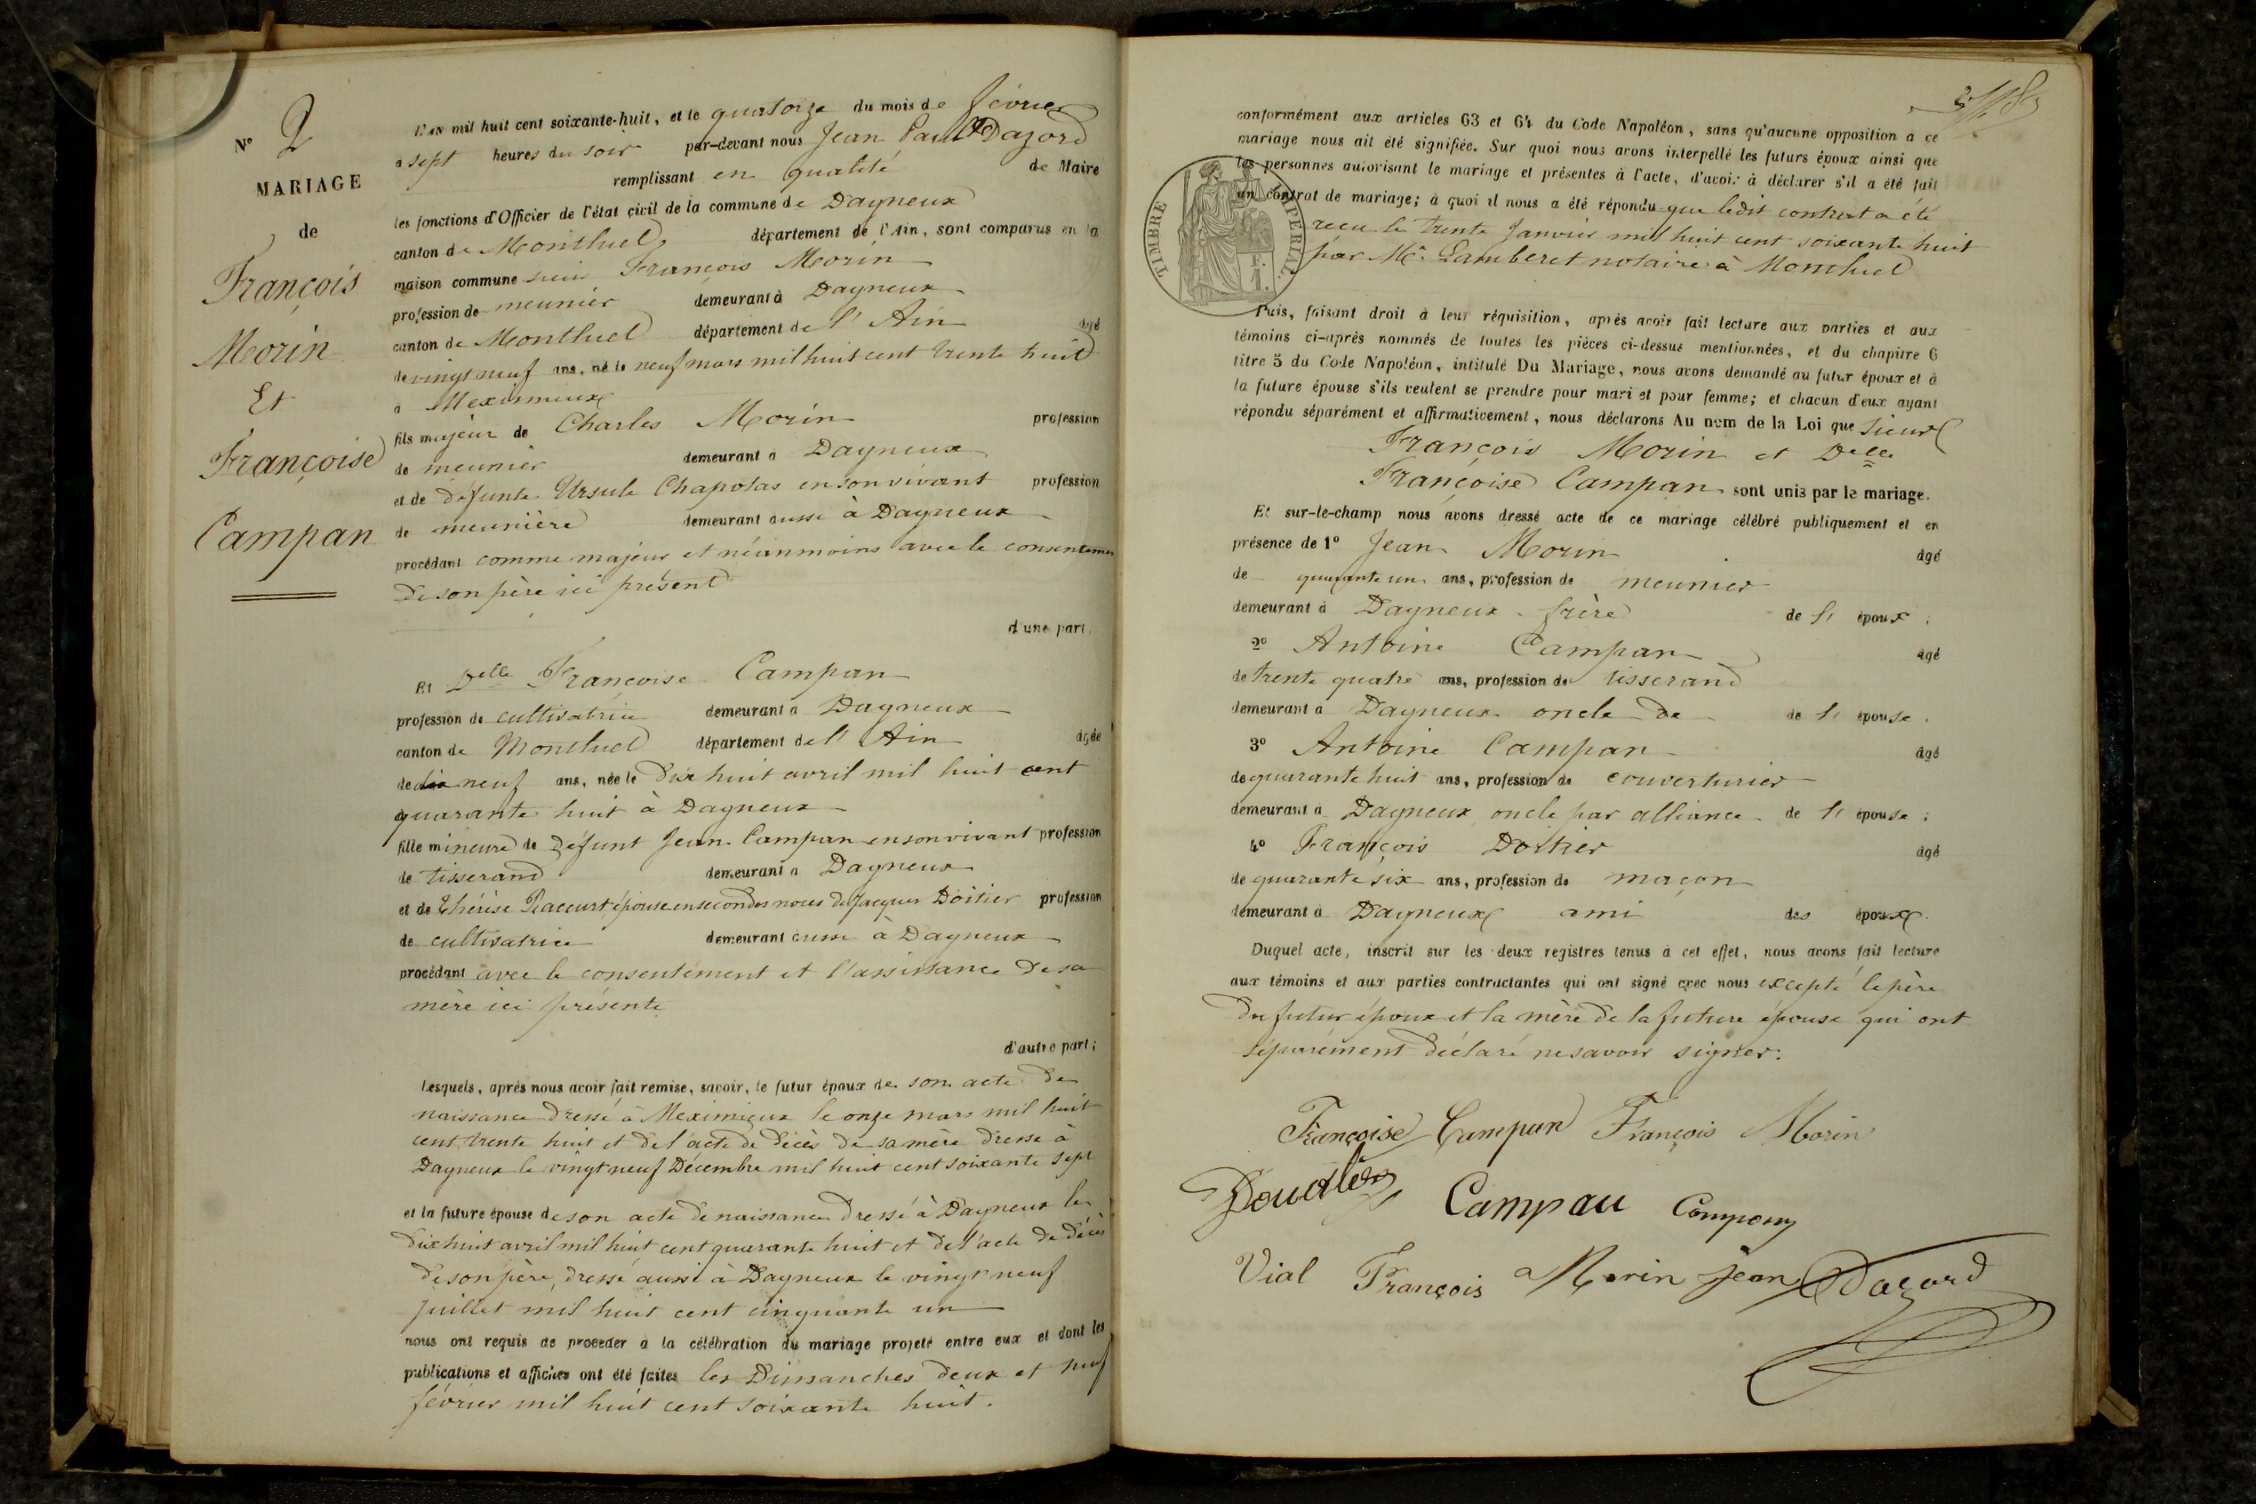 N° 2
MARIAGE
de
François
Morin
Et
Françoise
Campan
L'an mil huit cent soixante-huit, et le quatorze du mois de février
a sept heures du soir par-devant nous Jean Paul Dazord
remplissant en qualité de Maire
les fonctions d'Officier de l'état civil de la commune de Dagneux
canton de Montluel département de l'Ain, sont comparus en la
maison commune sieur François Morin
profession de meunier demeurant à Dagneux
canton de Montluel département de l'Ain âgé
de vingt neuf ans, né le neuf mars mil huit cent trente huit
à Meximieux
fils majeur de Charles Morin profession
de meunier demeurant à Dagneux
et de défunte Ursule Chapolas en son vivant profession
de meunière demeurant aussi à Dagneux
procédant comme majeur et néanmoins avec le consentemen
de son père ici présent
d'une part,
Et Delle Françoise Campan
profession de cultivatrice demeurant à Dagneux
canton de Montluel département de l'Ain âgée
de dix neuf ans, née le dix huit avril mil huit cent
quarante huit à Dagneux
fille mineure de défunt Jean Campan en son vivant profession
de tisserand demeurant à Dagneux
et de Thérèse Raccurt épouse en secondes noces de Jacques Doitier profession
de cultivatrice demeurant aussi à Dagneux
procédant avec le consentement et l'assistance de sa
mère ici présente
d'autre part;
Lesquels, après nous avoir fait remise, savoir, le futur époux de son acte de
naissance dressé à Meximieux le onze mars mil huit
cent trente huit et de l'acte de décès de sa mère dressé à
Dagneux le vingt neuf Décembre mil huit cent soixante sept
et la future épouse de son acte de naissance dressé à Dagneux le
dix huit avril mil huit cent quarante huit et de l'acte de décès
de son père, dressé aussi à Dagneux le vingt neuf
juillet mil huit cent cinquante un
nous ont requis de procéder à la célébration du mariage projeté entre eux et dont les
publications et affiches ont été faites les Dimanches deux et neuf
février mil huit cent soixante huit.
conformément aux articles 63 et 64 du Code Napoléon, sans qu'aucune opposition à ce
mariage nous ait été signifiée. Sur quoi nous avons interpellé les futurs époux ainsi que
les personnes autorisant le mariage et présentes à l'acte, d'avoir à déclarer s'il a été fait
un contrat de mariage; à quoi il nous a été répondu que ledit contrat a été
reçu le trente Janvier mil huit cent soixante huit
par Me Lamberet notaire à Montluel
TIMBRE IMPERIAL
Puis, faisant droit à leur réquisition, après avoir fait lecture aux parties et aux
témoins ci-après nommés de toutes les pièces ci-dessus mentionnées, et du chapitre 6
titre 5 du Code Napoléon, intitulé Du Mariage, nous avons demandé au futur époux et à
la future épouse s'ils veulent se prendre pour mari et pour femme; et chacun d'eux ayant
répondu séparément et affirmativement, nous déclarons Au nom de la Loi que Sieur
François Morin et Delle
Françoise Campan sont unis par le mariage.
Et sur-le-champ nous avons dressé acte de ce mariage célébré publiquement et en
présence de 1° Jean Morin âgé
de quarante un ans, profession de meunier
demeurant à Dagneux frère de l' époux;
2° Antoine Campan âgé
de trente quatre ans, profession de tisserand
demeurant à Dagneux oncle de de l' épouse.
3° Antoine Campan âgé
de quarante huit ans, profession de couverturier
demeurant à Dagneux oncle par alliance de l' épouse;
4° François Doitier âgé
de quarante six ans, profession de maçon
demeurant à Dagneux ami des époux.
Duquel acte, inscrit sur les deux registres tenus à cet effet, nous avons fait lecture
aux témoins et aux parties contractantes qui ont signé avec nous excepté le père
du futur époux et la mère de la future épouse qui ont
séparément déclaré ne savoir signer.
Françoise Campan François Morin
Campau Compony
Vial François Morin Jean Dazord